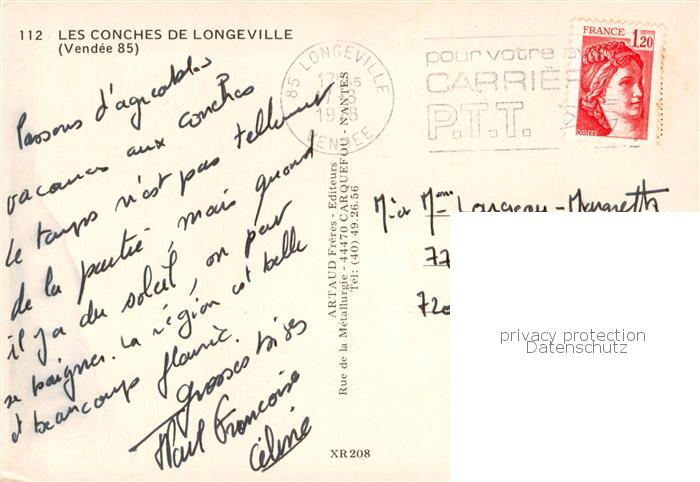 112 LES CONCHES DE LONGEVILLE
(Vendée 85)
85 LONGEVILLE
VENDEE
pour votre
CARRIÈ
P.T.T.
FRANCE 1,20
POSTES
Passons d'agréables
vacances aux conches
le temps n'est pas tellement
de la partie, mais quand
il y a du soleil, on peut
se baigner. La région est belle
et beaucoup fleurie.
grosses bises
Paul Francoise
Céline
ARTAUD Frères - Editeurs
Rue de la Métallurgie - 44470 CARQUEFOU - NANTES
Tél: (40) 49.26.56
XR 208
M. et Mme
77
720
privacy protection
Datenschutz